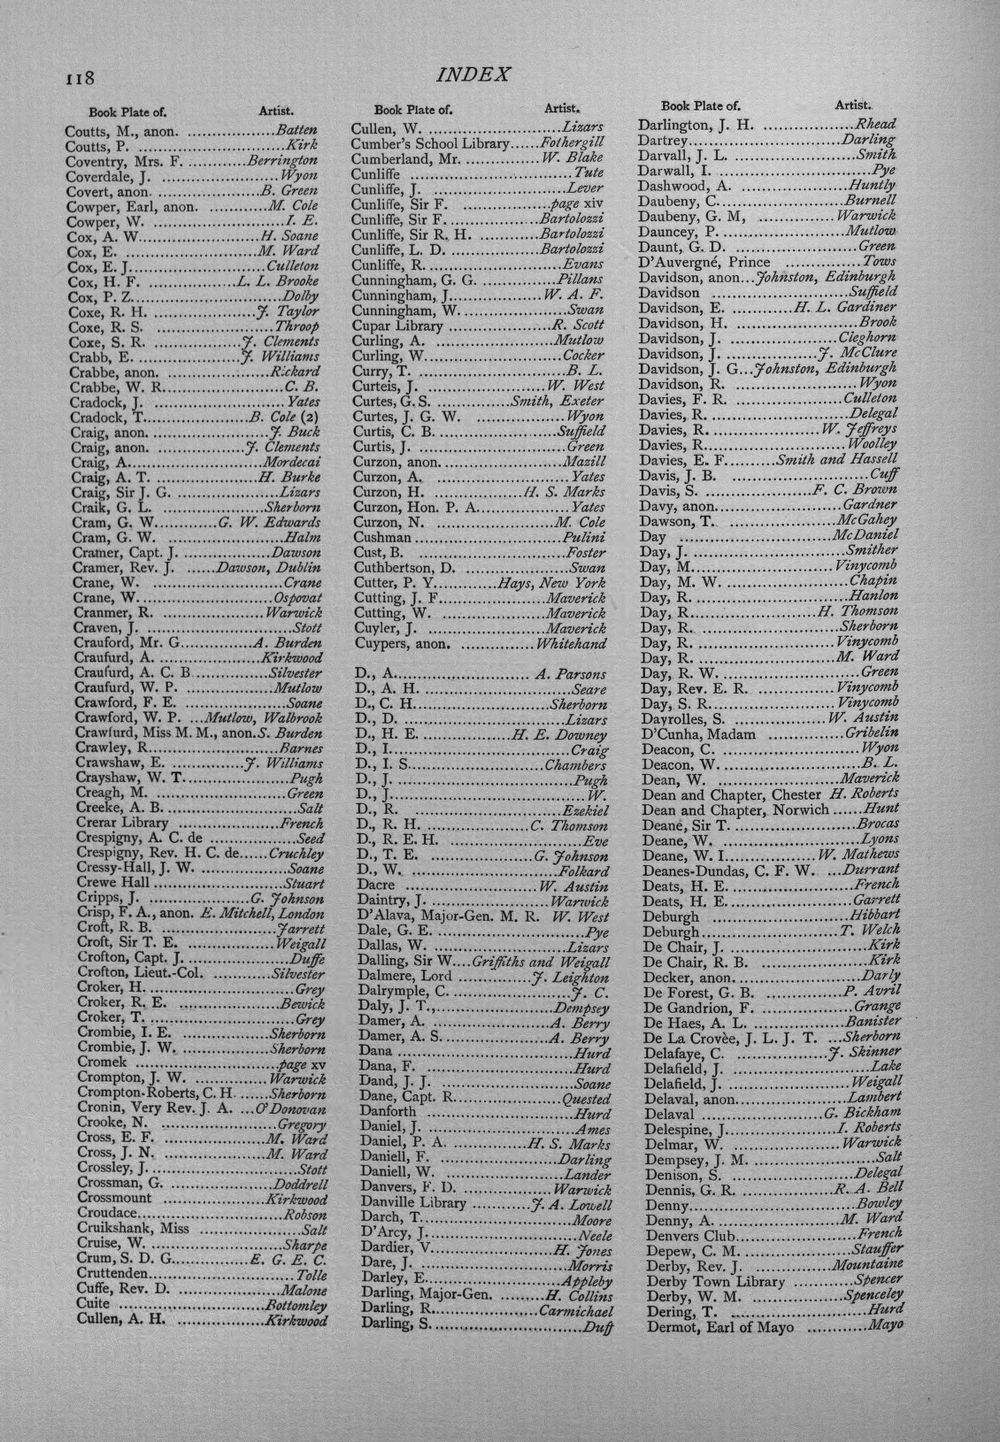 118
INDEX
Book Plate of. Artist.
Coutts, M., anon. ..................Batten
Coutts, P. ...........................Kirk
Coventry, Mrs. F. ............Berrington
Coverdale, J. ........................Wyon
Covert, anon. .....................B. Green
Cowper, Earl, anon. ............M. Cole
Cowper, W. ...........................I. E.
Cox, A. W........................H. Soane
Cox, E. ...........................M. Ward
Cox, E. J..........................Culleton
Cox, H. F. ..................L. L. Brooke
Cox, P. Z..............................Dolby
Coxe, R. H. .....................J. Taylor
Coxe, R. S. ........................Throop
Coxe, S. R. ..................J. Clements
Crabb, E. .....................J. Williams
Crabbe, anon. .....................Rickard
Crabbe, W. R........................C. B.
Cradock, J. ...........................Yates
Cradock, T.....................B. Cole (2)
Craig, anon. ........................J. Buck
Craig, anon. ..................J. Clements
Craig, A...........................Mordecai
Craig, A. T. .....................H. Burke
Craig, Sir J. G. .....................Lizars
Craik, G. L. .....................Sherborn
Cram, G. W............G. W. Edwards
Cram, G. W. ........................Halm
Cramer, Capt. J. ..................Dawson
Cramer, Rev. J. ......Dawson, Dublin
Crane, W. ...........................Crane
Crane, W...........................Ospovat
Cranmer, R. .....................Warwick
Craven, J. ..............................Stott
Crauford, Mr. G...............A. Burden
Craufurd, A. .....................Kirkwood
Craufurd, A. C. B ...............Silvester
Craufurd, W. P. ..................Mutlow
Crawford, F. E. .....................Soane
Crawford, W. P. ...Mutlow, Walbrook
Crawfurd, Miss M. M., anon.S. Burden
Crawley, R...........................Barnes
Crawshaw, E. ...............J. Williams
Crayshaw, W. T.....................Pugh
Creagh, M. ...........................Green
Creeke, A. B. ...........................Salt
Crerar Library .....................French
Crespigny, A. C. de ..................Seed
Crespigny, Rev. H. C. de......Cruchley
Cressy-Hall, J. W. ..................Soane
Crewe Hall ...........................Stuart
Cripps, J. .....................G. Johnson
Crisp, F. A., anon. E. Mitchell, London
Croft, R. B. ........................Jarrett
Croft, Sir T. E. ..................Weigall
Crofton, Capt. J. .....................Duffe
Crofton, Lieut.-Col. ............Silvester
Croker, H. ..............................Grey
Croker, R. E. .....................Bewick
Croker, T. ..............................Grey
Crombie, I. E. ..................Sherborn
Crombie, J. W. ..................Sherborn
Cromek ...........................page xv
Crompton, J. W. ...............Warwick
Crompton-Roberts, C. H. ......Sherborn
Cronin, Very Rev. J. A. ...O'Donovan
Crooke, N. .....................Gregory
Cross, E. F. .....................M. Ward
Cross, J. N. .....................M. Ward
Crossley, J. ...........................Stott
Crossman, G. .....................Doddrell
Crossmount .....................Kirkwood
Croudace...........................Robson
Cruikshank, Miss .....................Salt
Cruise, W. ...........................Sharpe
Crum, S. D. G...............E. G. E. C.
Cruttenden...........................Tolle
Cuffe, Rev. D. .....................Malone
Cuite ...........................Bottomley
Cullen, A. H. ..................Kirkwood
Book Plate of. Artist.
Cullen, W. ...........................Lizars
Cumber's School Library......Fothergill
Cumberland, Mr. ...............W. Blake
Cunliffe .................................Tute
Cunliffe, J. ...........................Lever
Cunliffe, Sir F. ..................page xiv
Cunliffe, Sir F. ..................Bartolozzi
Cunliffe, Sir R. H. ............Bartolozzi
Cunliffe, L. D. ..................Bartolozzi
Cunliffe, R. ...........................Evans
Cunningham, G. G. ...............Pillans
Cunningham, J..................W. A. F.
Cunningham, W. .....................Swan
Cupar Library .....................R. Scott
Curling, A. ........................Mutlow
Curling, W...........................Cocker
Curry, T. ..............................B. L.
Curteis, J. ........................W. West
Curtes, G. S. ...............Smith, Exeter
Curtes, J. G. W. .....................Wyon
Curtis, C. B. ........................Suffield
Curtis, J. ..............................Green
Curzon, anon. ........................Mazill
Curzon, A. ...........................Yates
Curzon, H. ..................H. S. Marks
Curzon, Hon. P. A..................Yates
Curzon, N. ........................M. Cole
Cushman ...........................Pulini
Cust, B. ..............................Foster
Cuthbertson, D. .....................Swan
Cutter, P. Y............Hays, New York
Cutting, J. F.....................Maverick
Cutting, W. .....................Maverick
Cuyler, J. ........................Maverick
Cuypers, anon. ...............Whitehand
D., A. ........................A. Parsons
D., A. H. ..............................Seare
D., C. H...........................Sherborn
D., D. .................................Lizars
D., H. E. ..................H. E. Downey
D., I....................................Craig
D., I. S...........................Chambers
D., J. .................................Pugh
D., J....................................W.
D., R. .................................Ezekiel
D., R. H. .....................C. Thomson
D., R. E. H. ...........................Eve
D., T. E. .....................G. Johnson
D., W. ..............................Folkard
Dacre ........................W. Austin
Daintry, J. ........................Warwick
D'Alava, Major-Gen. M. R. W. West
Dale, G. E. ..............................Pye
Dallas, W. ...........................Lizars
Dalling, Sir W....Griffiths and Weigall
Dalmere, Lord ...............J. Leighton
Dalrymple, C. ........................J. C.
Daly, J. T.,........................Dempsey
Damer, A. ........................A. Berry
Damer, A. S.....................A. Berry
Dana .................................Hurd
Dana, F. ..............................Hurd
Dand, J. J. ...........................Soane
Dane, Capt. R.....................Quested
Danforth ..............................Hurd
Daniel, J. ..............................Ames
Daniel, P. A. ...............H. S. Marks
Daniell, F. ........................Darling
Daniell, W. ........................Lander
Danvers, F. D. ..................Warwick
Danville Library ............J. A. Lowell
Darch, T..............................Moore
D'Arcy, J..............................Neele
Dardier, V........................H. Jones
Dare, J. ..............................Morris
Darley, E...........................Appleby
Darling, Major-Gen. .........H. Collins
Darling, R.....................Carmichael
Darling, S..............................Duff
Book Plate of. Artist.
Darlington, J. H. ..................Rhead
Dartrey..............................Darling
Darvall, J. L. ........................Smith
Darwall, I. ..............................Pye
Dashwood, A. .....................Huntly
Daubeny, C........................Burnell
Daubeny, G. M, ...............Warwick
Dauncey, P. ........................Mutlow
Daunt, G. D. ........................Green
D'Auvergné, Prince ...............Tows
Davidson, anon...Johnston, Edinburgh
Davidson ...........................Suffield
Davidson, E. ............H. L. Gardiner
Davidson, H. ........................Brook
Davidson, J. .....................Cleghorn
Davidson, J. ..................J. McClure
Davidson, J. G...Johnston, Edinburgh
Davidson, R. ........................Wyon
Davies, F. R. .....................Culleton
Davies, R. ...........................Delegal
Davies, R. .....................W. Jeffreys
Davies, R...........................Woolley
Davies, E. F.........Smith and Hassell
Davis, J. B. ...........................Cuff
Davis, S. .....................F. C. Brown
Davy, anon........................Gardner
Dawson, T. .....................McGahey
Day ..............................McDaniel
Day, J. ..............................Smither
Day, M...........................Vinycomb
Day, M. W. ........................Chapin
Day, R. ..............................Hanlon
Day, R........................H. Thomson
Day, R. ...........................Sherborn
Day, R. ...........................Vinycomb
Day, R. ...........................M. Ward
Day, R. W. ...........................Green
Day, Rev. E. R. ...............Vinycomb
Day, S. R........................Vinycomb
Dayrolles, S. ..................W. Austin
D'Cunha, Madam ...............Gribelin
Deacon, C. ...........................Wyon
Deacon, W...........................B. L.
Dean, W. ........................Maverick
Dean and Chapter, Chester H. Roberts
Dean and Chapter, Norwich ......Hunt
Deane, Sir T. ........................Brocas
Deane, W. ...........................Lyons
Deane, W. I..................W. Mathews
Deanes-Dundas, C. F. W. ...Durrant
Deats, H. E. ........................French
Deats, H. E........................Garrett
Deburgh ...........................Hibbart
Deburgh ........................T. Welch
De Chair, J. ...........................Kirk
De Chair, R. B. .....................Kirk
Decker, anon........................Darly
De Forest, G. B. ...............P. Avril
De Gandrion, F. ..................Grange
De Haes, A. L. ..................Banister
De La Crovèe, J. L. J. T. ...Sherborn
Delafaye, C. ..................J. Skinner
Delafield, J. ...........................Lake
Delafield, J. ........................Weigall
Delaval, anon.....................Lambert
Delaval .....................G. Bickham
Delespine, J.....................I. Roberts
Delmar, W. .....................Warwick
Dempsey, J. M. ........................Salt
Denison, S. ........................Delegal
Dennis, G. R. ..................R. A. Bell
Denny..............................Bowley
Denny, A. ........................M. Ward
Denvers Club........................French
Depew, C. M. .....................Stauffer
Derby, Rev. J. ...............Mountaine
Derby Town Library ............Spencer
Derby, W. M. ..................Spenceley
Dering, T. ...........................Hurd
Dermot, Earl of Mayo ............Mayo